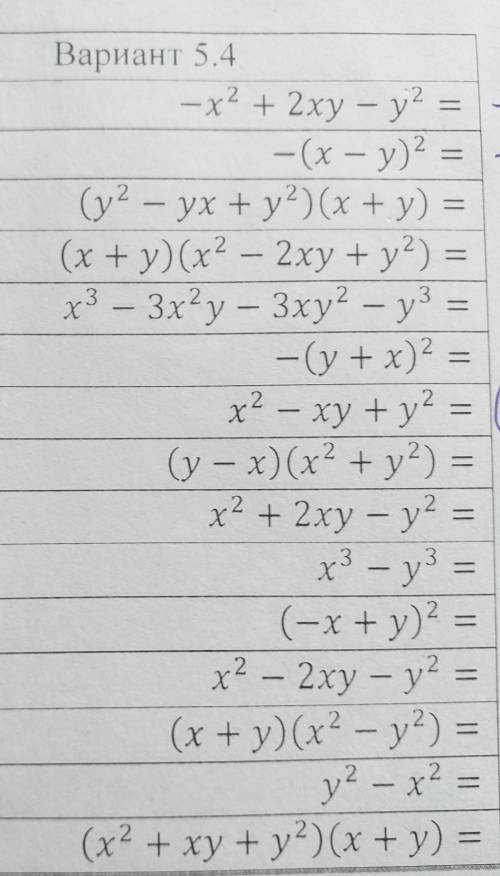 Вариант 5.4
−x² + 2xy − y² =
−(x − y)² =
(y² − yx + y²)(x + y) =
(x + y)(x² − 2xy + y²) =
x³ − 3x²y − 3xy² − y³ =
−(y + x)² =
x² − xy + y² =
(y − x)(x² + y²) =
x² + 2xy − y² =
x³ − y³ =
(−x + y)² =
x² − 2xy − y² =
(x + y)(x² − y²) =
y² − x² =
(x² + xy + y²)(x + y) =